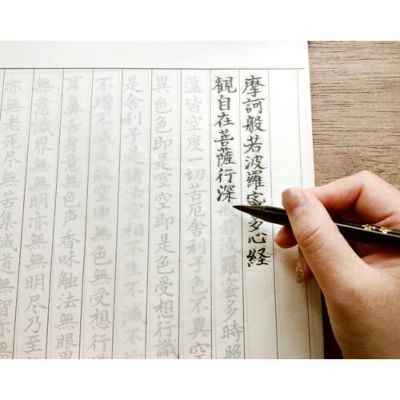 摩訶般若波羅蜜多心経
観自在菩薩行深波羅蜜多時照
蘊皆空度一切苦厄舎利子色不異空
異色色即是空空即是色受想行識
是舎利子相不生不滅不
不増不減是故空中無色無受想行
耳鼻色声香味触法無眼界
無意識界無無明亦無無明尽乃至
亦無老死尽無苦集滅道無智亦